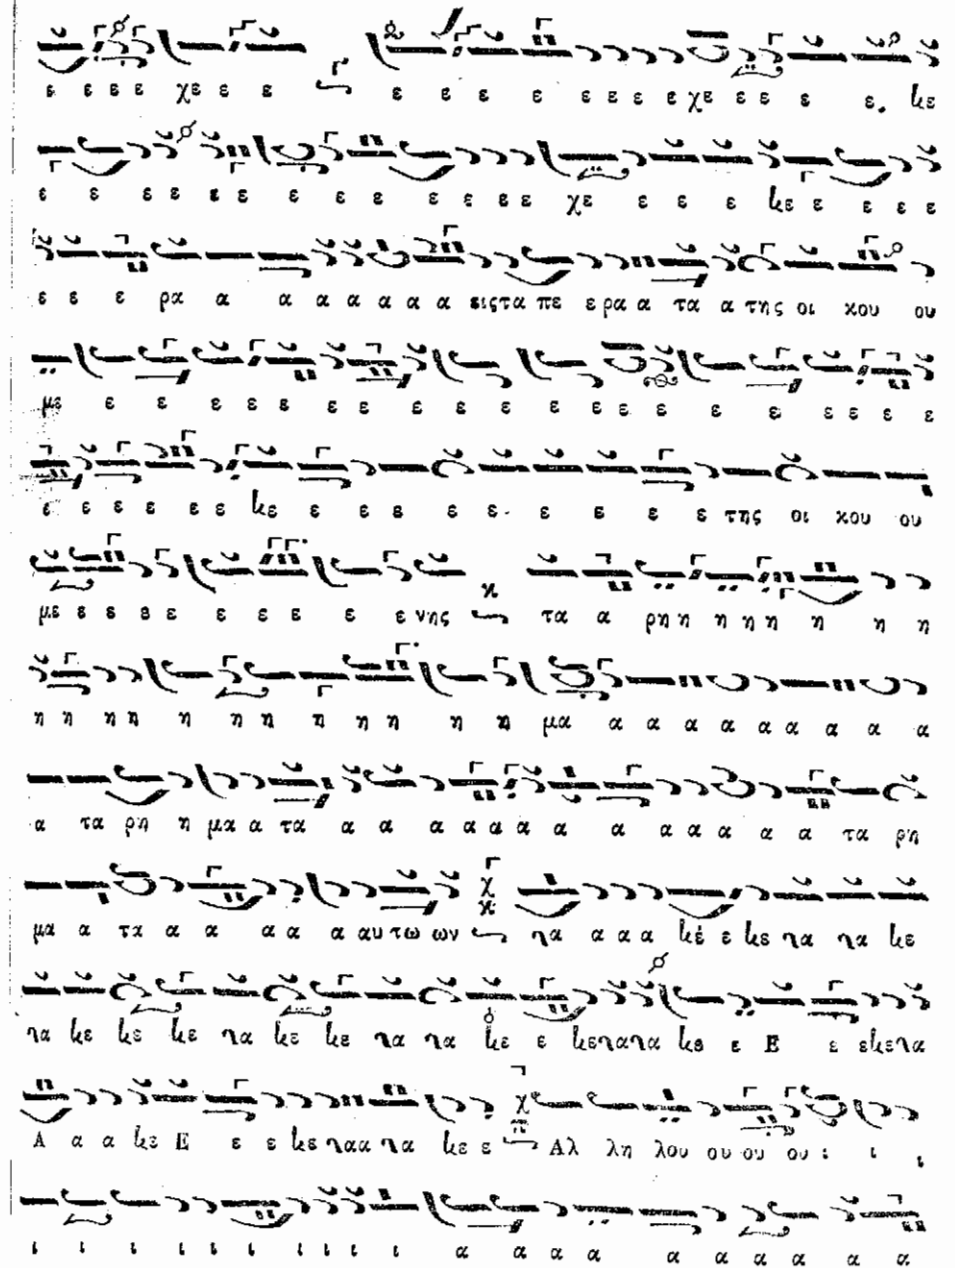 ε ε ε ε χε ε ε ε ε ε ε ε ε ε ε χε ε ε ε ε. κε
ε ε ε ε ε ε ε ε ε ε ε ε ε χε ε ε ε κε ε ε ε ε
ε ε ε ρα α α α α α α α εις τα πε ε ρα α τα α της οι κου ου
με ε ε ε ε ε ε ε ε ε ε ε ε ε ε ε ε ε ε ε ε
ε ε ε ε ε ε κε ε ε ε ε ε ε ε ε ε της οι κου ου
με ε ε ε ε ε ε ε ε ε νης τα α ρη η η η η η η η
η η η η η η η η η η η η μα α α α α α α α α α
α τα ρη η μα α τα α α α α α α α α α α α α α τα ρη
μα α τα α α α α α αυ τω ων να α α α κέ ε κε να να κε
να κε κε κε να κε κε να να κε ε κεναναα κε ε Ε ε εκενα
Α α α κε Ε ε ε κε νααα να κε ε Αλ λη λου ου ου ου ι ι ι
ι ι ι ι ι ι ι ι ι ι α α α α α α α α α α